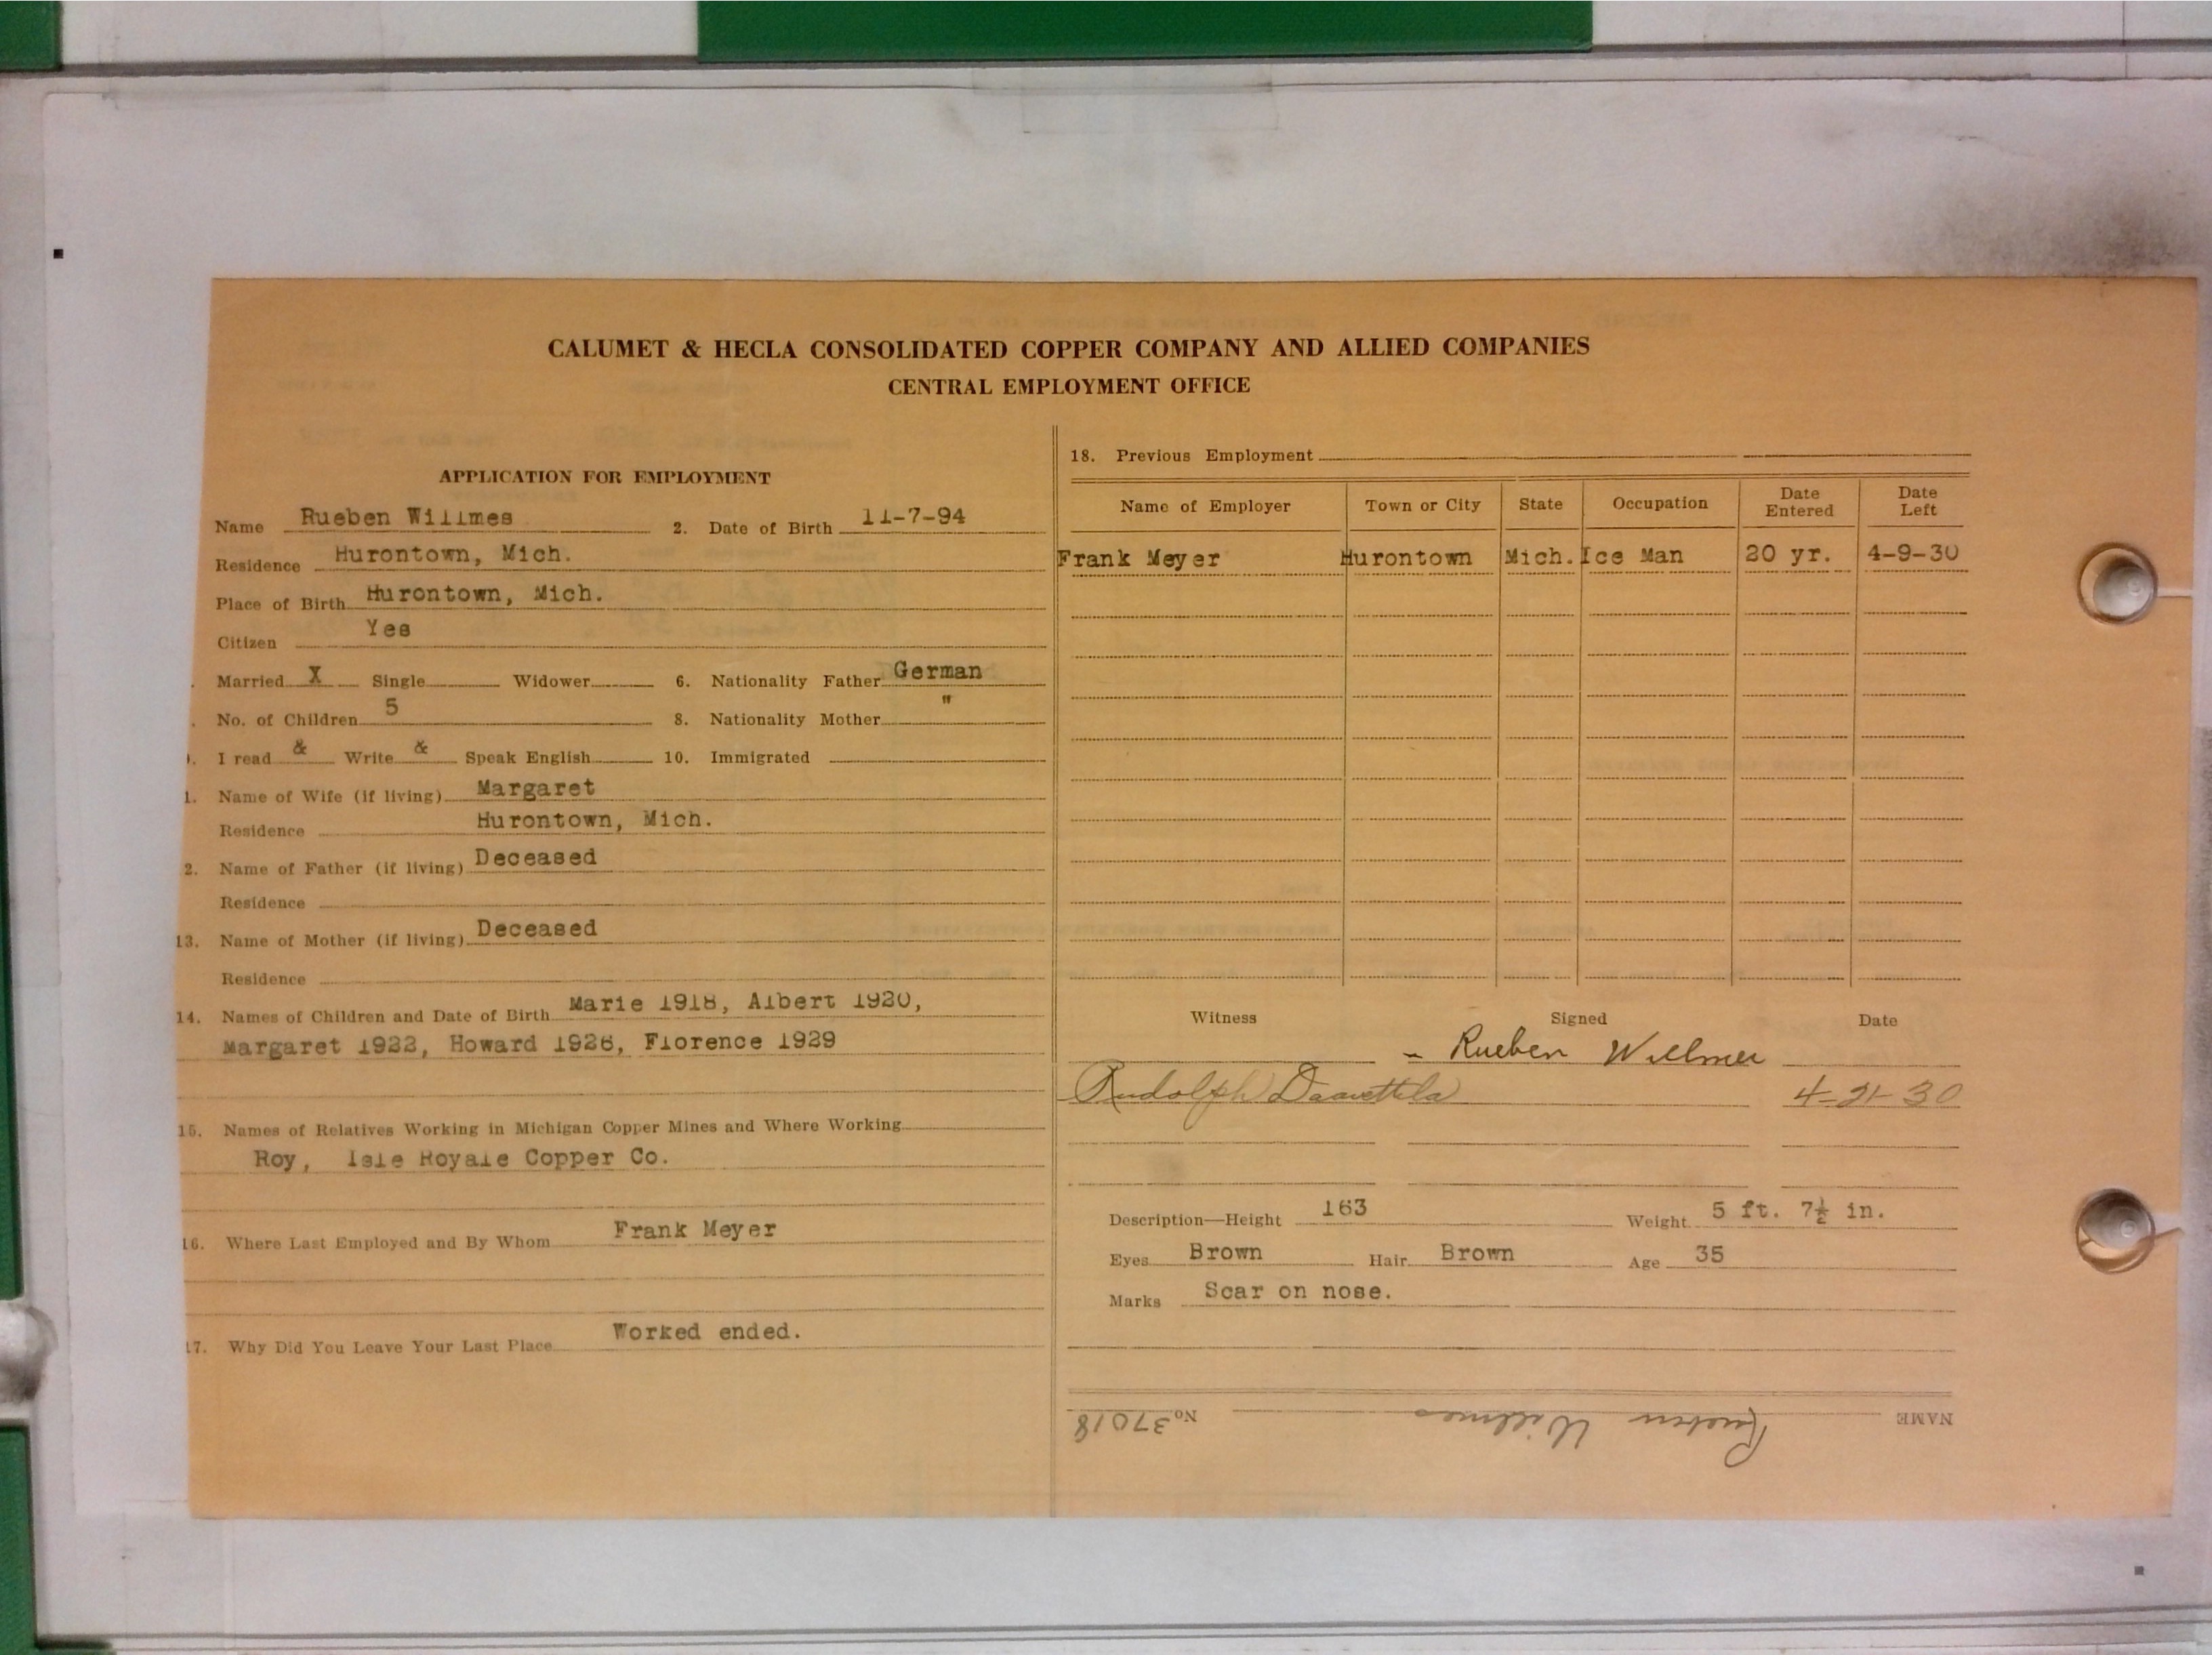 CALUMET & HECLA CONSOLIDATED COPPER COMPANY AND ALLIED COMPANIES
CENTRAL EMPLOYMENT OFFICE
APPLICATION FOR EMPLOYMENT
Name Rueben Willmes 2. Date of Birth 11-7-94
Residence Hurontown, Mich.
Place of Birth Hurontown, Mich.
Citizen Yes
Married X Single Widower 6. Nationality Father German
No. of Children 5 8. Nationality Mother "
I read & Write & Speak English 10. Immigrated
1. Name of Wife (if living) Margaret
Residence Hurontown, Mich.
2. Name of Father (if living) Deceased
Residence
13. Name of Mother (if living) Deceased
Residence
14. Names of Children and Date of Birth Marie 1918, Albert 1920,
Margaret 1922, Howard 1926, Florence 1929
15. Names of Relatives Working in Michigan Copper Mines and Where Working
Roy, Isle Royale Copper Co.
16. Where Last Employed and By Whom Frank Meyer
17. Why Did You Leave Your Last Place Worked ended.
18. Previous Employment
Name of Employer Town or City State Occupation Date Entered Date Left
Frank Meyer Hurontown Mich. Ice Man 20 yr. 4-9-30
Witness Signed Date
Rueben Willmes
Rudolph Daavettila 4-21-30
Description—Height 163 Weight 5 ft. 7½ in.
Eyes Brown Hair Brown Age 35
Marks Scar on nose.
NAME Rueben Willmes No 37018